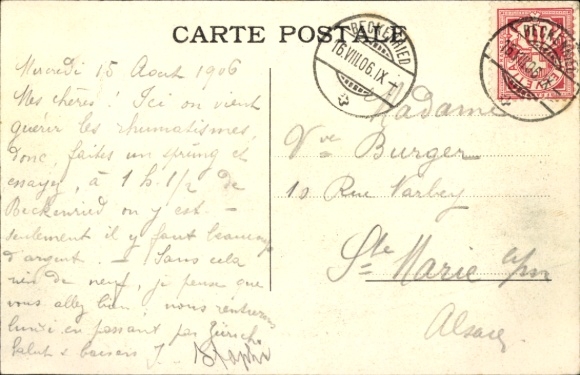 CARTE POSTALE
BECKENRIED
16.VIII.06.IX
BECKENRIED
16.VIII.06
Mercredi 15 Aout 1906
Mes chères! Ici on vient
quérir les rhumatismes,
donc, faites un sprüng et
essayez, à 1 h. 1/2 de
Beckenried on y est. –
seulement il y faut beaucoup
d'argent. – Sans cela
rien de neuf, je pense que
vous allez bien! nous rentrerons
lundi en passant par Zürich.
Salut & baisers J.
Madame
Vve Burger
Rue Narbey
Ste Marie a/m
Alsace